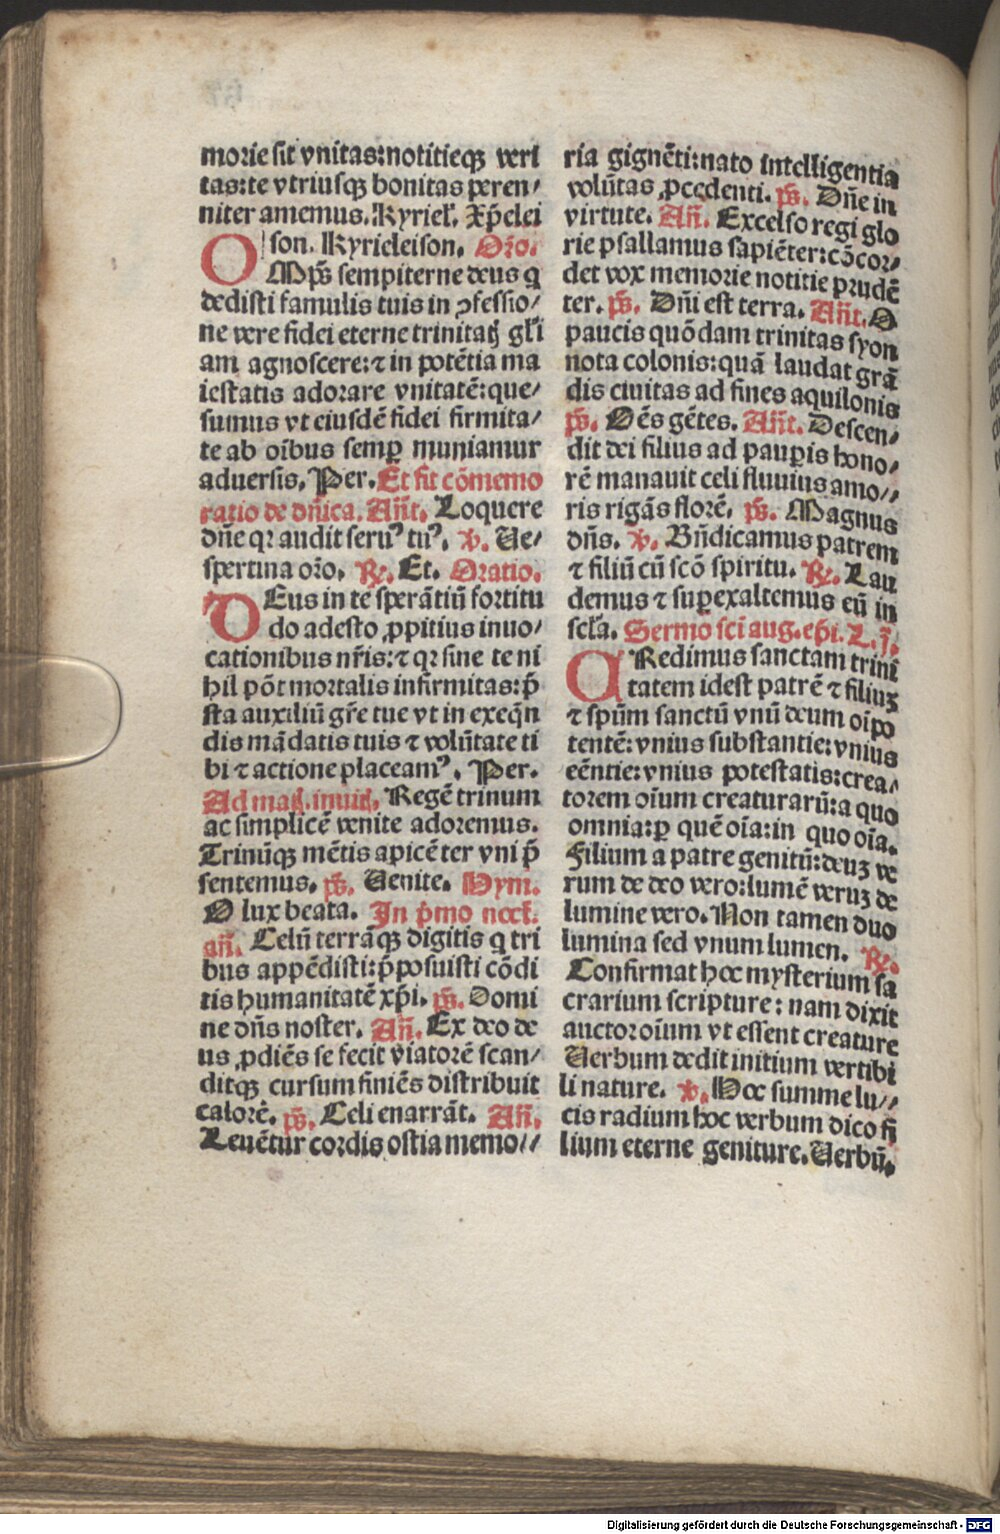 morie sit vnitas:notitieqꝫ veri
tas:te vtriusqꝫ bonitas peren/
niter amemus. Kyriel̕. Xp̄elei
son. Kyrieleison. Or̄o.
OMp̄s sempiterne deus q
dedisti famulis tuis in ꝯfessio/
ne vere fidei eterne trinitatꝭ gl̄i
am agnoscere:⁊ in potētia ma
iestatis adorare vnitatē:que/
sumus vt eiusdē fidei firmita/
te ab oībus semꝑ muniamur
aduersis. Per. Et fit cōmemo
ratio de dn̄ica. Añt. Loquere
dn̄e qꝛ audit seruꝰ tuꝰ. ꝟ. Ue/
spertina or̄o. ℞. Et. Oratio.
DEus in te sperātiū fortitu
do adesto ꝓpitius inuo/
cationibus nr̄is:⁊ qꝛ sine te ni
hil pōt mortalis infirmitas:p̄
sta auxiliū gr̄e tue vt in exeqn̄
dis mādatis tuis ⁊ volūtate ti
bi ⁊ actione placeamꝰ. Per.
Ad matꝭ.inuitꝭ. Regē trinum
ac simplicē venite adoremus.
Trinūqꝫ mētis apicē ter vni p̄
sentemus. ps̄. Uenite. Hym.
O lux beata. In p̄mo noct̕.
añ. Celū terrāqꝫ digitis q tri
bus appēdisti:p̄posuisti cōdi
tis humanitatē xp̄i. ps̄. Domi
ne dn̄s noster. Añ. Ex deo de
us ꝓdiēs se fecit viatorē scan/
ditqꝫ cursum finiēs distribuit
calorē. ps̄. Celi enarrāt. Añ.
Leuētur cordis ostia memo//
ria gignēti:nato intelligentia
volūtas ꝓcedenti. ps̄. Dn̄e in
virtute. Añ. Excelso regi glo
rie psallamus sapiēter:cōcor/
det vox memorie notitie prudē
ter. ps̄. Dn̄i est terra. Añt. O
paucis quōdam trinitas syon
nota colonis:quā laudat grā
dis ciuitas ad fines aquilonis
ps̄. Oēs gētes. Añt. Descen/
dit dei filius ad pauꝑis hono/
rē manauit celi fluuius amo//
ris rigās florē. ps̄. Magnus
dn̄s. ꝟ. Bn̄dicamus patrem
⁊ filiū cū scō spiritu. ℞. Lau
demus ⁊ suꝑexaltemus eū in
scl̄a. Sermo sci aug.ep̄i. L.j.
CRedimus sanctam trini
tatem idest patrē ⁊ filiuꝫ
⁊ sp̄um sanctū vnū deum oīpo
tentē:vnius substantie:vnius
eēntie:vnius potestatis:crea/
torem oīum creaturarū:a quo
omnia:ꝑ quē oīa:in quo oīa.
Filium a patre genitū:deuꝫ ve
rum de deo vero:lumē veruꝫ de
lumine vero. Non tamen duo
lumina sed vnum lumen. ℞.
Confirmat hoc mysterium sa
crarium scripture: nam dixit
auctor oīum vt essent creature
Uerbum dedit initium vertibi
li nature. ꝟ. Hoc summe lu//
cis radium hoc verbum dico fi
lium eterne geniture. Uerbū.
Digitalisierung gefördert durch die Deutsche Forschungsgemeinschaft - DFG